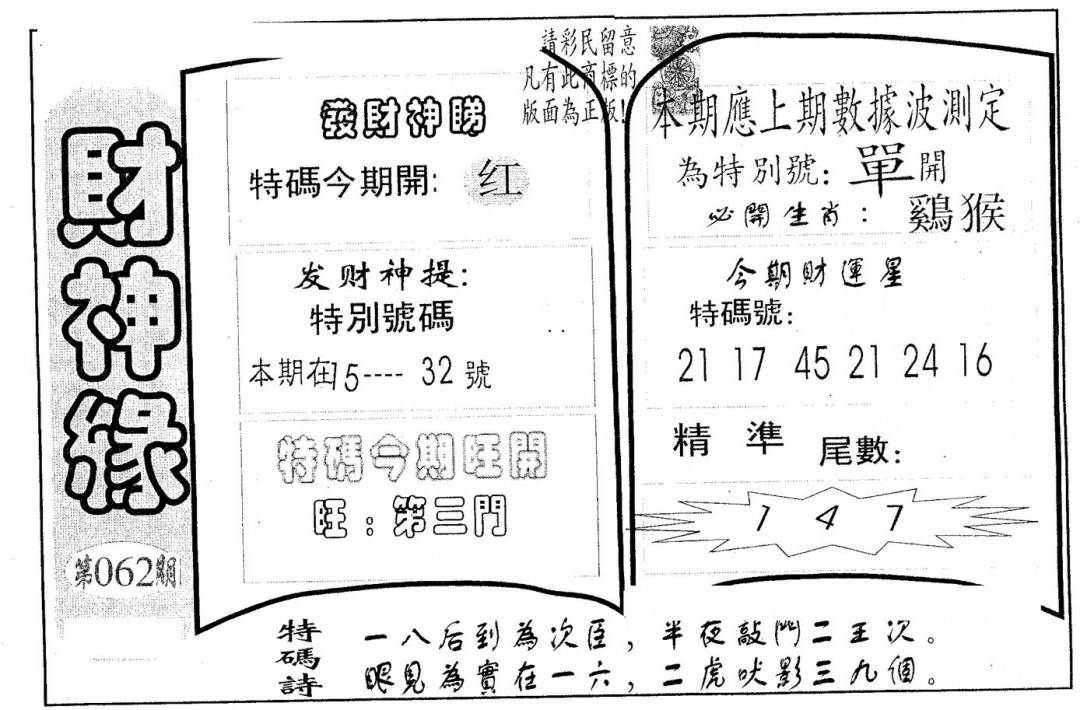 請彩民留意
凡有此商標的
版面為正版!
財神緣
第062期
發財神睇
特碼今期開: 红
发财神提:
特別號碼
本期在15----32號
特碼今期旺開
旺:第三門
本期應上期數據波測定
為特別號:單開
必開生肖:鷄猴
今期財運星
特碼號:
21 17 45 21 24 16
精準 尾數:
1 4 7
特碼詩
一八后到為次臣,半夜敲門二王次。
眼見為實在一六,二虎吠影三九個。